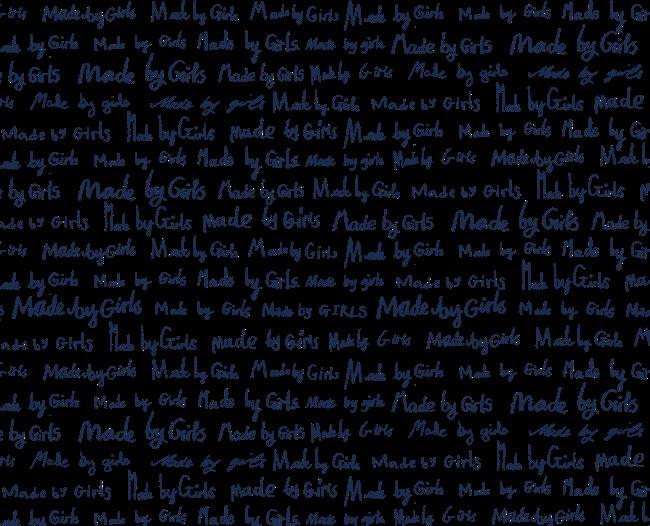 Girls Made by Girls Made by Girls Made by Girls Made by Girls Made by Girls Made by
by Girls Made by Girls Made by Girls Made by girls Made by Girls Made by Girls
by Girls Made by Girls Made by Girls Made by Girls Made by girls Made by girls
Made by girls Made by girls Made by Girls Made by Girls Made by Girls made
Made by Girls Made by Girls made by Girls Made by Girls Made by Girls Made by
by Girls Made by Girls Made by Girls Made by girls Made by Girls Made by Girls Made
by Girls Made by Girls Made by Girls Made by Girls Made by Girls Made by Girls
by Girls Made by Girls made by Girls Made by Girls Made by Girls Made by
Girls Made by Girls Made by Girls Made by Girls Made by Girls Made by Girls Made by
by Girls Made by Girls Made by Girls Made by girls Made by Girls Made by Girls
Made by Girls Made by Girls Made by GIRLS Made by Girls Made by Girls
by Girls Made by Girls made by Girls Made by Girls Made by Girls Made by Girls
Girls Made by Girls Made by Girls Made by Girls Made by Girls Made by Girls Made by
by Girls Made by Girls Made by Girls Made by girls Made by Girls Made by Girls
by Girls Made by Girls Made by Girls Made by Girls Made by girls Made by girls
Made by girls Made by girls Made by Girls Made by Girls Made by Girls made
Made by Girls Made by Girls made by Girls Made by Girls Made by Girls Made by
by Girls Made by Girls Made by Girls Made by girls Made by Girls Made by Girls Made